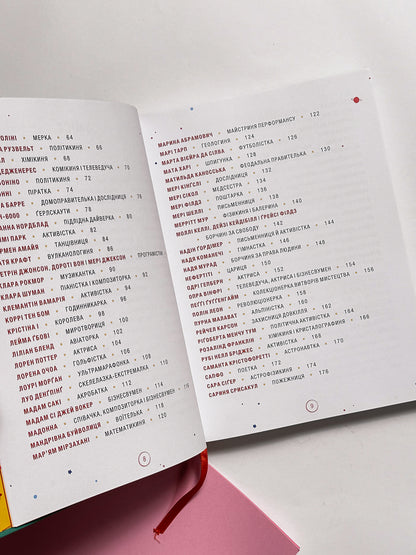 ОЛІНІ • МЕРКА • 64
А РУЗВЕЛЬТ • ПОЛІТИКИНЯ • 66
ХІМІКИНЯ • 68
ДЕДЖЕНЕРЕС • КОМІКИНЯ І ТЕЛЕВЕДУЧА • 70
ПОЛІТИКИНЯ • 72
ПІРАТКА • 74
БАРРЕ • ДОМОПРАВИТЕЛЬКА І ДОСЛІДНИЦЯ • 76
-6000 • ҐЕРЛСКАУТИ • 78
АННА НОРДБЛАД • ПІДЛІДНА ДАЙВЕРКА • 80
ІМІ ПАРК • АКТИВІСТКА • 82
РМЕН АМАЙЯ • ТАНЦІВНИЦЯ • 84
АТЯ КРАФТ • ВУЛКАНОЛОГИНЯ • 86
ЕТРІН ДЖОНСОН, ДОРОТІ ВОН І МЕРІ ДЖЕКСОН • ПРОГРАМІСТКИ
КЛАРА РОКМОР • МУЗИКАНТКА • 90
КЛАРА ШУМАН • ПІАНІСТКА І КОМПОЗИТОРКА • 92
КЛЕМАНТІН ВАМАРІЯ • АКТИВІСТКА • 94
КОРРІ ТЕН БОМ • ГОДИННИКАРКА • 96
КРІСТІНА І • КОРОЛЕВА • 98
ЛЕЙМА ГБОВІ • МИРОТВОРИЦЯ • 100
ЛІЛІАН БЛЕНД • АВІАТОРКА • 102
ЛОРЕН ПОТТЕР • АКТРИСА • 104
ЛОРЕНА ОЧОА • ГОЛЬФІСТКА • 106
ЛОУРІ МОРГАН • УЛЬТРАМАРАФОНКА • 108
ЛУО ДЕНГПІНГ • СКЕЛЕЛАЗКА-ЕКСТРЕМАЛКА • 110
МАДАМ САКІ • АКРОБАТКА • 112
МАДАМ СІ ДЖЕЙ ВОКЕР • БІЗНЕСВУМЕН • 114
МАДОННА • СПІВАЧКА, КОМПОЗИТОРКА І БІЗНЕСВУМЕН • 116
МАНДРІВНА БУЙВОЛИЦЯ • ВОЇТЕЛЬКА • 118
МАР'ЯМ МІРЗАХАНІ • МАТЕМАТИКИНЯ • 120
8
МАРИНА АБРАМОВИЧ • МАЙСТРИНЯ ПЕРФОРМАНСУ • 122
МАРІ ТАРП • ГЕОЛОГИНЯ • 124
МАРТА ВІЄЙРА ДА СІЛВА • ФУТБОЛІСТКА • 126
МАТА ХАРІ • ШПИГУНКА • 128
МАТИЛЬДА КАНОССЬКА • ФЕОДАЛЬНА ПРАВИТЕЛЬКА • 130
МЕРІ КІНГСЛІ • ДОСЛІДНИЦЯ • 132
МЕРІ СІКОЛ • МЕДСЕСТРА • 134
МЕРІ ФІЛДЗ • ПОШТАРКА • 136
МЕРІ ШЕЛЛІ • ПИСЬМЕННИЦЯ • 138
МЕРРІТТ МУР • ФІЗИКИНЯ І БАЛЕРИНА • 140
МОЛЛІ КЕЛЛІ, ДЕЙЗІ КЕЙДІБІЛ І ГРЕЙСІ ФІЛДЗ
• БОРЧИНІ ЗА СВОБОДУ • 142
НАДІН ГОРДІМЕР • ПИСЬМЕННИЦЯ Й АКТИВІСТКА • 144
НАДЯ КОМАНЕЧІ • ГІМНАСТКА • 146
НАДЯ МУРАД • БОРЧИНЯ ЗА ПРАВА ЛЮДИНИ • 148
НЕФЕРТІТІ • ЦАРИЦЯ • 150
ОДРІ ГЕПБЕРН • АКТРИСА • 152
ОПРА ВІНФРІ • ТЕЛЕВЕДУЧА, АКТРИСА І БІЗНЕСВУМЕН • 154
ПЕГГІ ГУГГЕНГАЙМ • КОЛЕКЦІОНЕРКА ВИТВОРІВ МИСТЕЦТВА • 156
ПОЛІН ЛЕОН • РЕВОЛЮЦІОНЕРКА • 158
ПУРНА МАЛАВАТ • АЛЬПІНІСТКА • 160
РЕЙЧЕЛ КАРСОН • ЗАХИСНИЦЯ ДОВКІЛЛЯ • 162
РІГОБЕРТА МЕНЧУ ТУМ • ПОЛІТИЧНА АКТИВІСТКА • 164
РОЗАЛІНД ФРАНКЛІН • ХІМІКИНЯ І КРИСТАЛОГРАФИНЯ • 166
РУБІ НЕЛЛ БРІДЖЕС • АКТИВІСТКА • 168
САМАНТА КРІСТОФОРЕТТІ • АСТРОНАВТКА • 170
САПФО • ПОЕТКА • 172
САРА СІГЕР • АСТРОФІЗИКИНЯ • 174
САРИНЯ СРИСАКУЛ • ПОЖЕЖНИЦЯ • 176
9